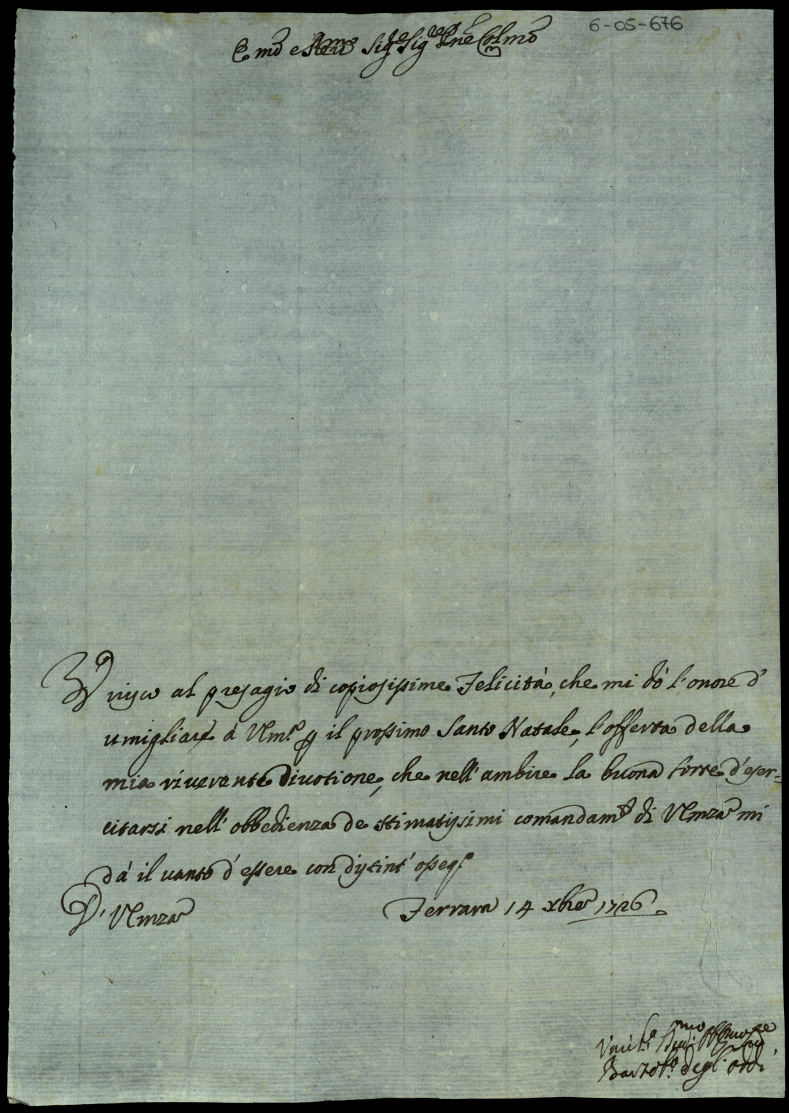 6-05-676
E.mo e R.mo Sig.e Sig.e P.ne Col.mo
Unisco al presagio di copiosissime Felicità, che mi dò l'onore d'
umigliare à V. Em.a p il prossimo Santo Natale, l'offerta della
mia riverente divotione, che nell'ambire la buona sorte d'eser-
citarsi nell'obbedienza de stimatissimi comandam.ti di V. Emza mi
dà il vanto d'essere con distint' osseq.o
D' V. Emza Ferrara 14 Xbre 1726.
Bartol.o degl'Obbi